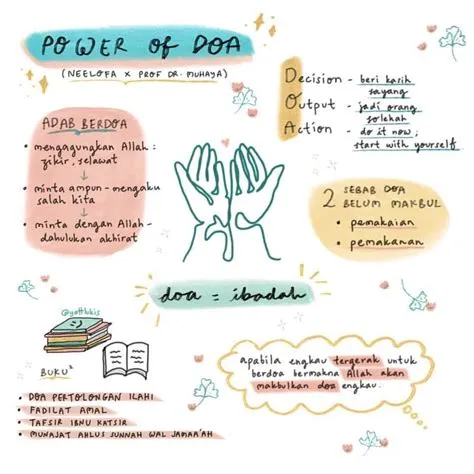 POWER OF DOA
(NEELOFA X PROF DR. MUHAYA)
Decision - beri kasih
sayang
Output - jadi orang
solehah
Action - do it now,
start with yourself
ADAB BERDOA
• mengagungkan Allah :
zikir, selawat
• minta ampun - mengaku
salah kita
• minta dengan Allah -
dahulukan akhirat
2 SEBAB DOA
BELUM MAKBUL
• pemakaian
• pemakanan
doa = ibadah
@yattlukis
BUKU²
• DOA PERTOLONGAN ILAHI
• FADILAT AMAL
• TAFSIR IBNU KATSIR
• MUNAJAT AHLUS SUNNAH WAL JAMAA'AH
apabila engkau tergerak untuk
berdoa bermakna Allah akan
makbulkan doa engkau.